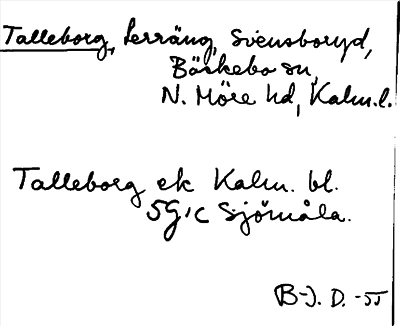 Talleborg, Lerräng, Svensboryd,
Bäckebo sn,
N. Möre hd, Kalm. l.
Talleborg ek Kalm. bl.
5G, c Sjömåla.
B-J. D. -55